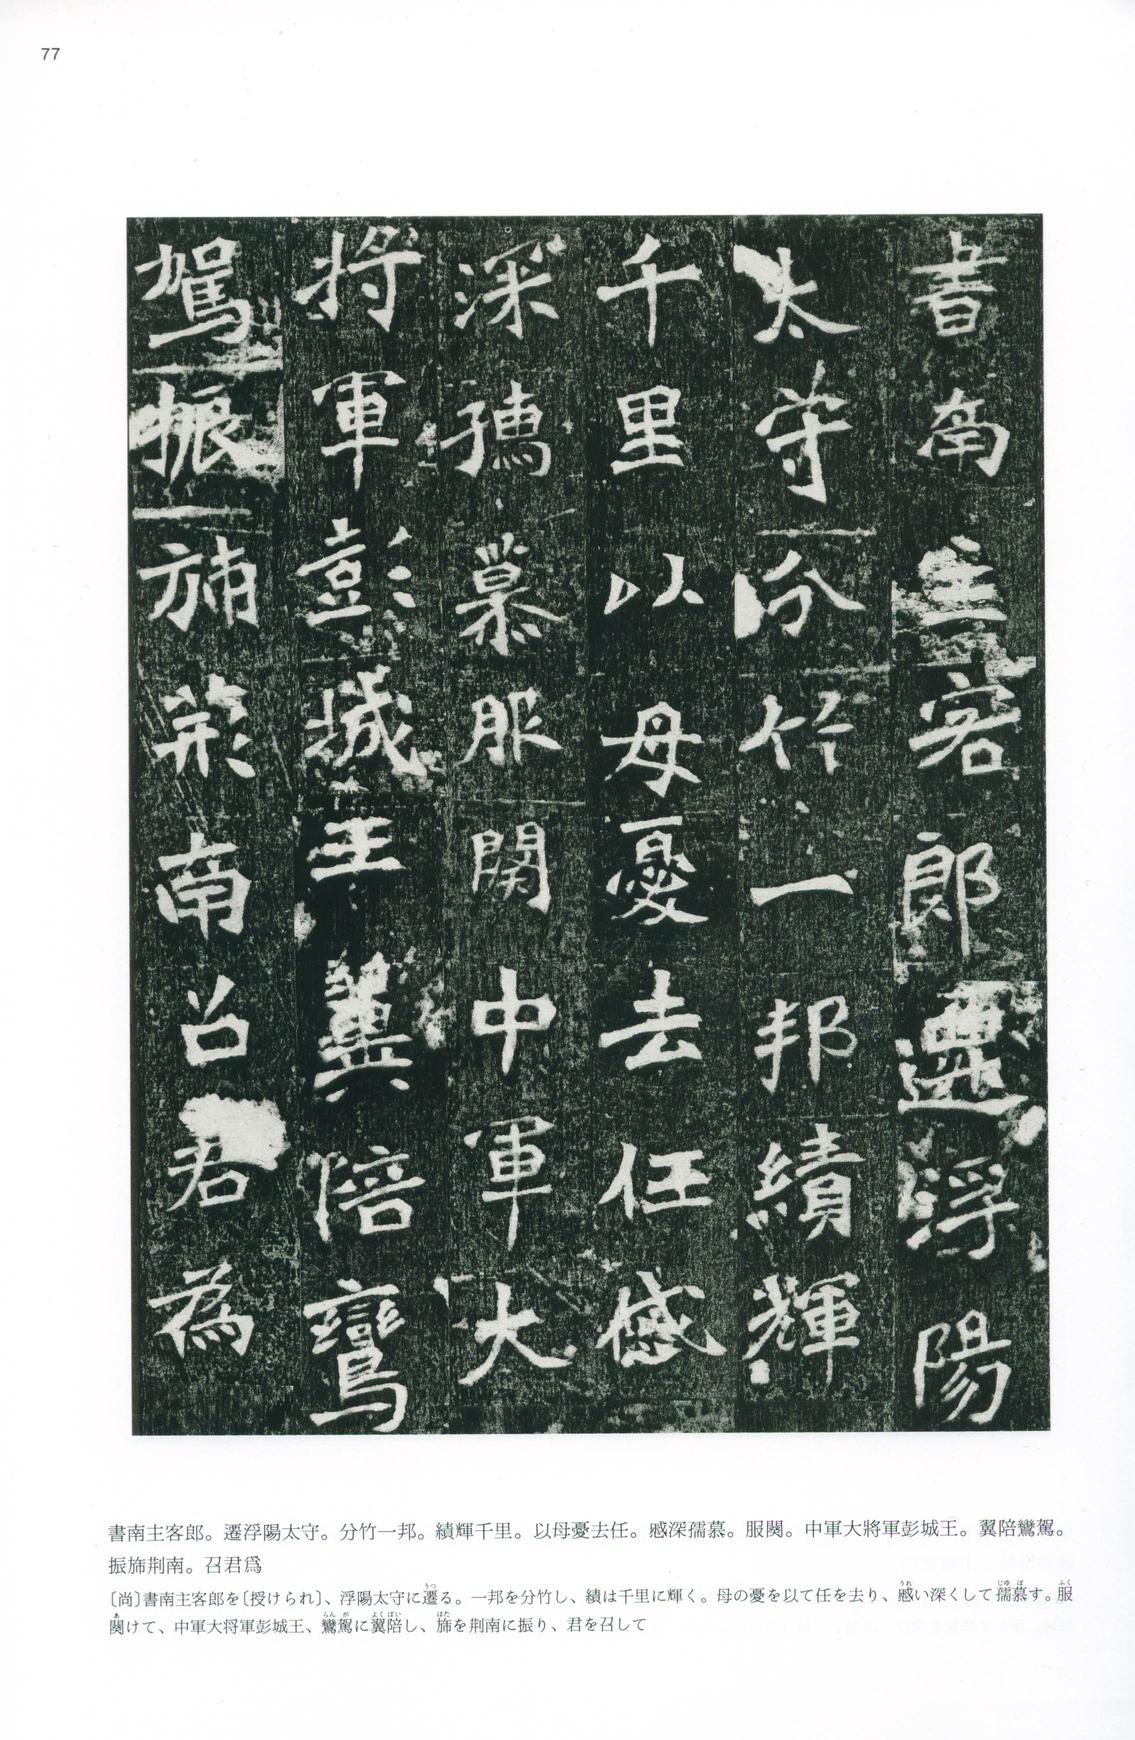 77
書南主客郎遷浮陽
太守分竹一邦績輝
千里以母憂去任慼
深孺慕服闋中軍大
將軍彭城王翼陪鸞
駕振旆荆南召君為
書南主客郎。遷浮陽太守。分竹一邦。績輝千里。以母憂去任。慼深孺慕。服闋。中軍大將軍彭城王。翼陪鸞駕。
振旆荆南。召君爲
〔尚〕書南主客郎を〔授けられ〕、浮陽太守に遷る。一邦を分竹し、績は千里に輝く。母の憂を以て任を去り、慼い深くして孺慕す。服
闋けて、中軍大将軍彭城王、鸞駕に翼陪し、旆を荆南に振り、君を召して